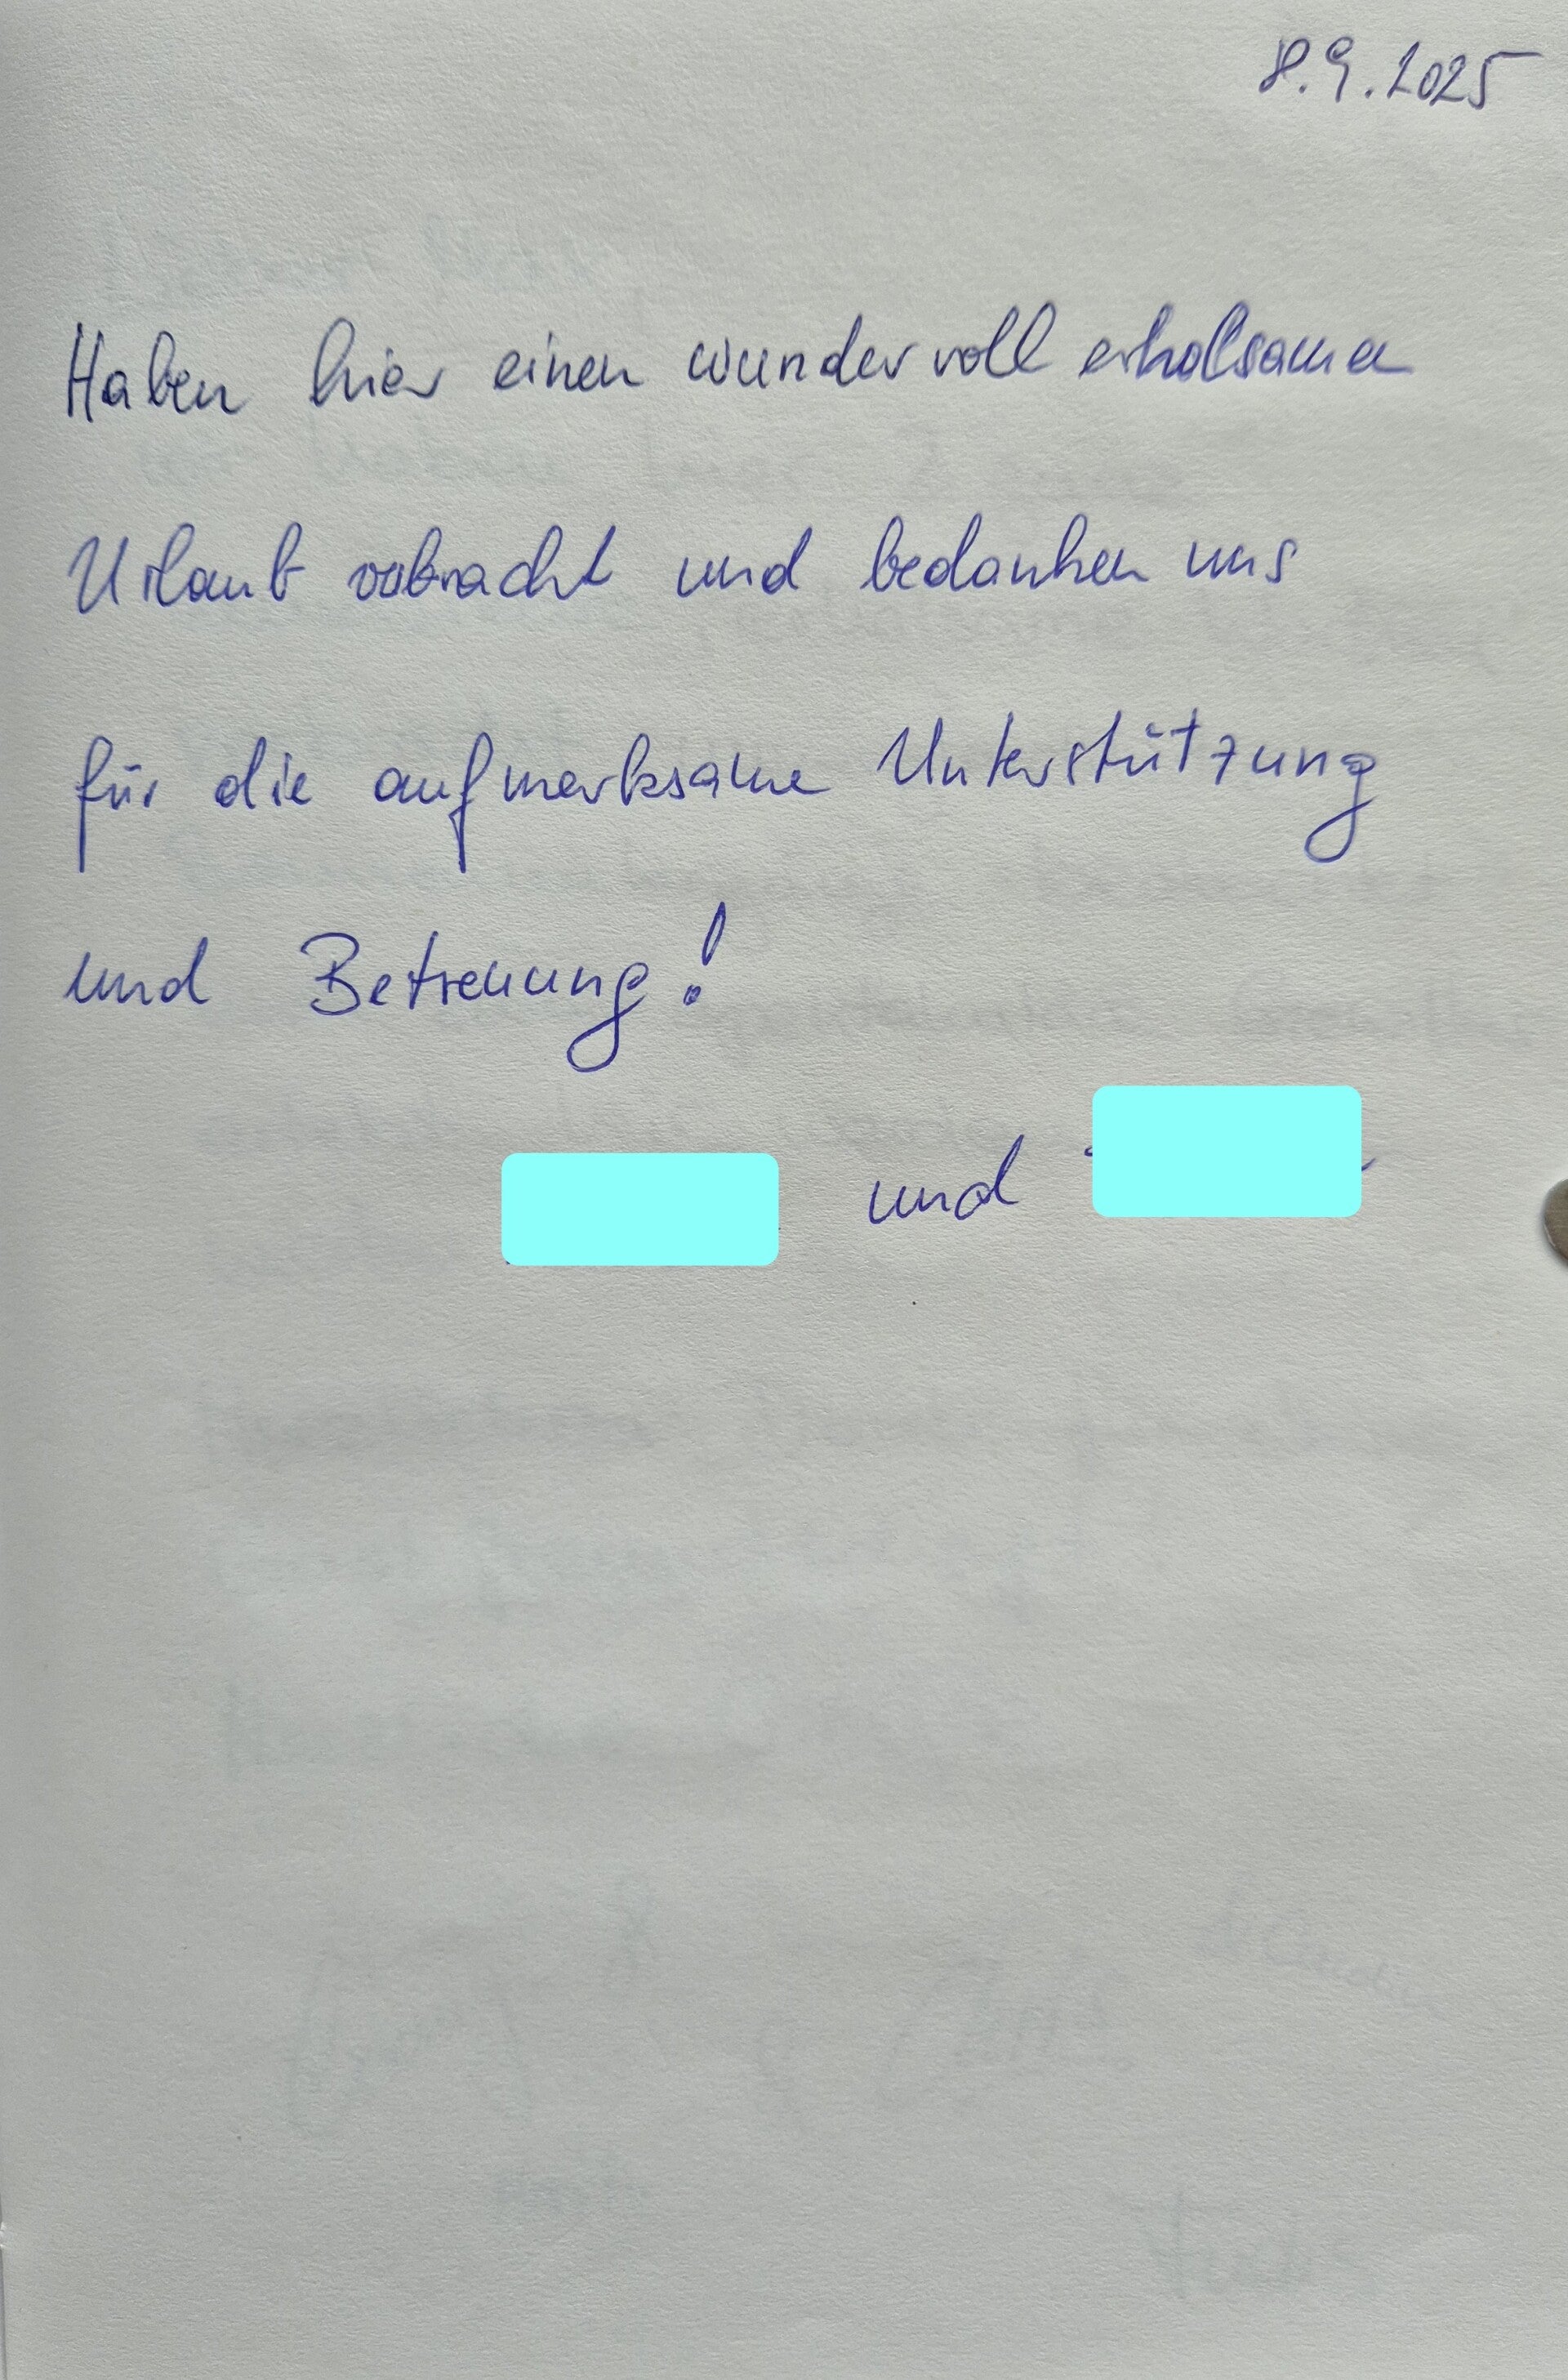 8.9.2025
Haben hier einen wundervoll erholsamen
Urlaub verbracht und bedanken uns
für die aufmerksame Unterstützung
und Betreuung!
und